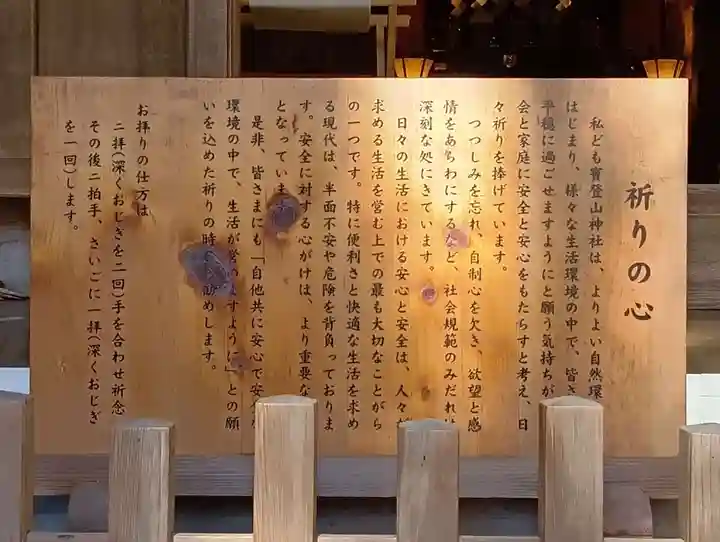 祈りの心
私ども寳登山神社は、よりよい自然環
はじまり、様々な生活環境の中で、皆さ
平穏に過ごせますようにと願う気持ちが
会と家庭に安全と安心をもたらすと考え、日
々祈りを捧げています。
つつしみを忘れ、自制心を欠き、欲望と感
情をあらわにするなど、社会規範のみだれは
深刻な処にきています。
日々の生活における安心と安全は、人々が
求める生活を営む上での最も大切なことがら
の一つです。特に便利さと快適な生活を求め
る現代は、半面不安や危険を背負っておりま
す。安全に対する心がけは、より重要な
となっていま
是非、皆さまにも「自他共に安心で安全な
環境の中で、生活が営めますように」との願
いを込めた祈りの時をお勧めします。
お拝りの仕方は
二拝(深くおじぎを二回)手を合わせ祈念
その後二拍手、さいごに一拝(深くおじぎ
を一回)します。